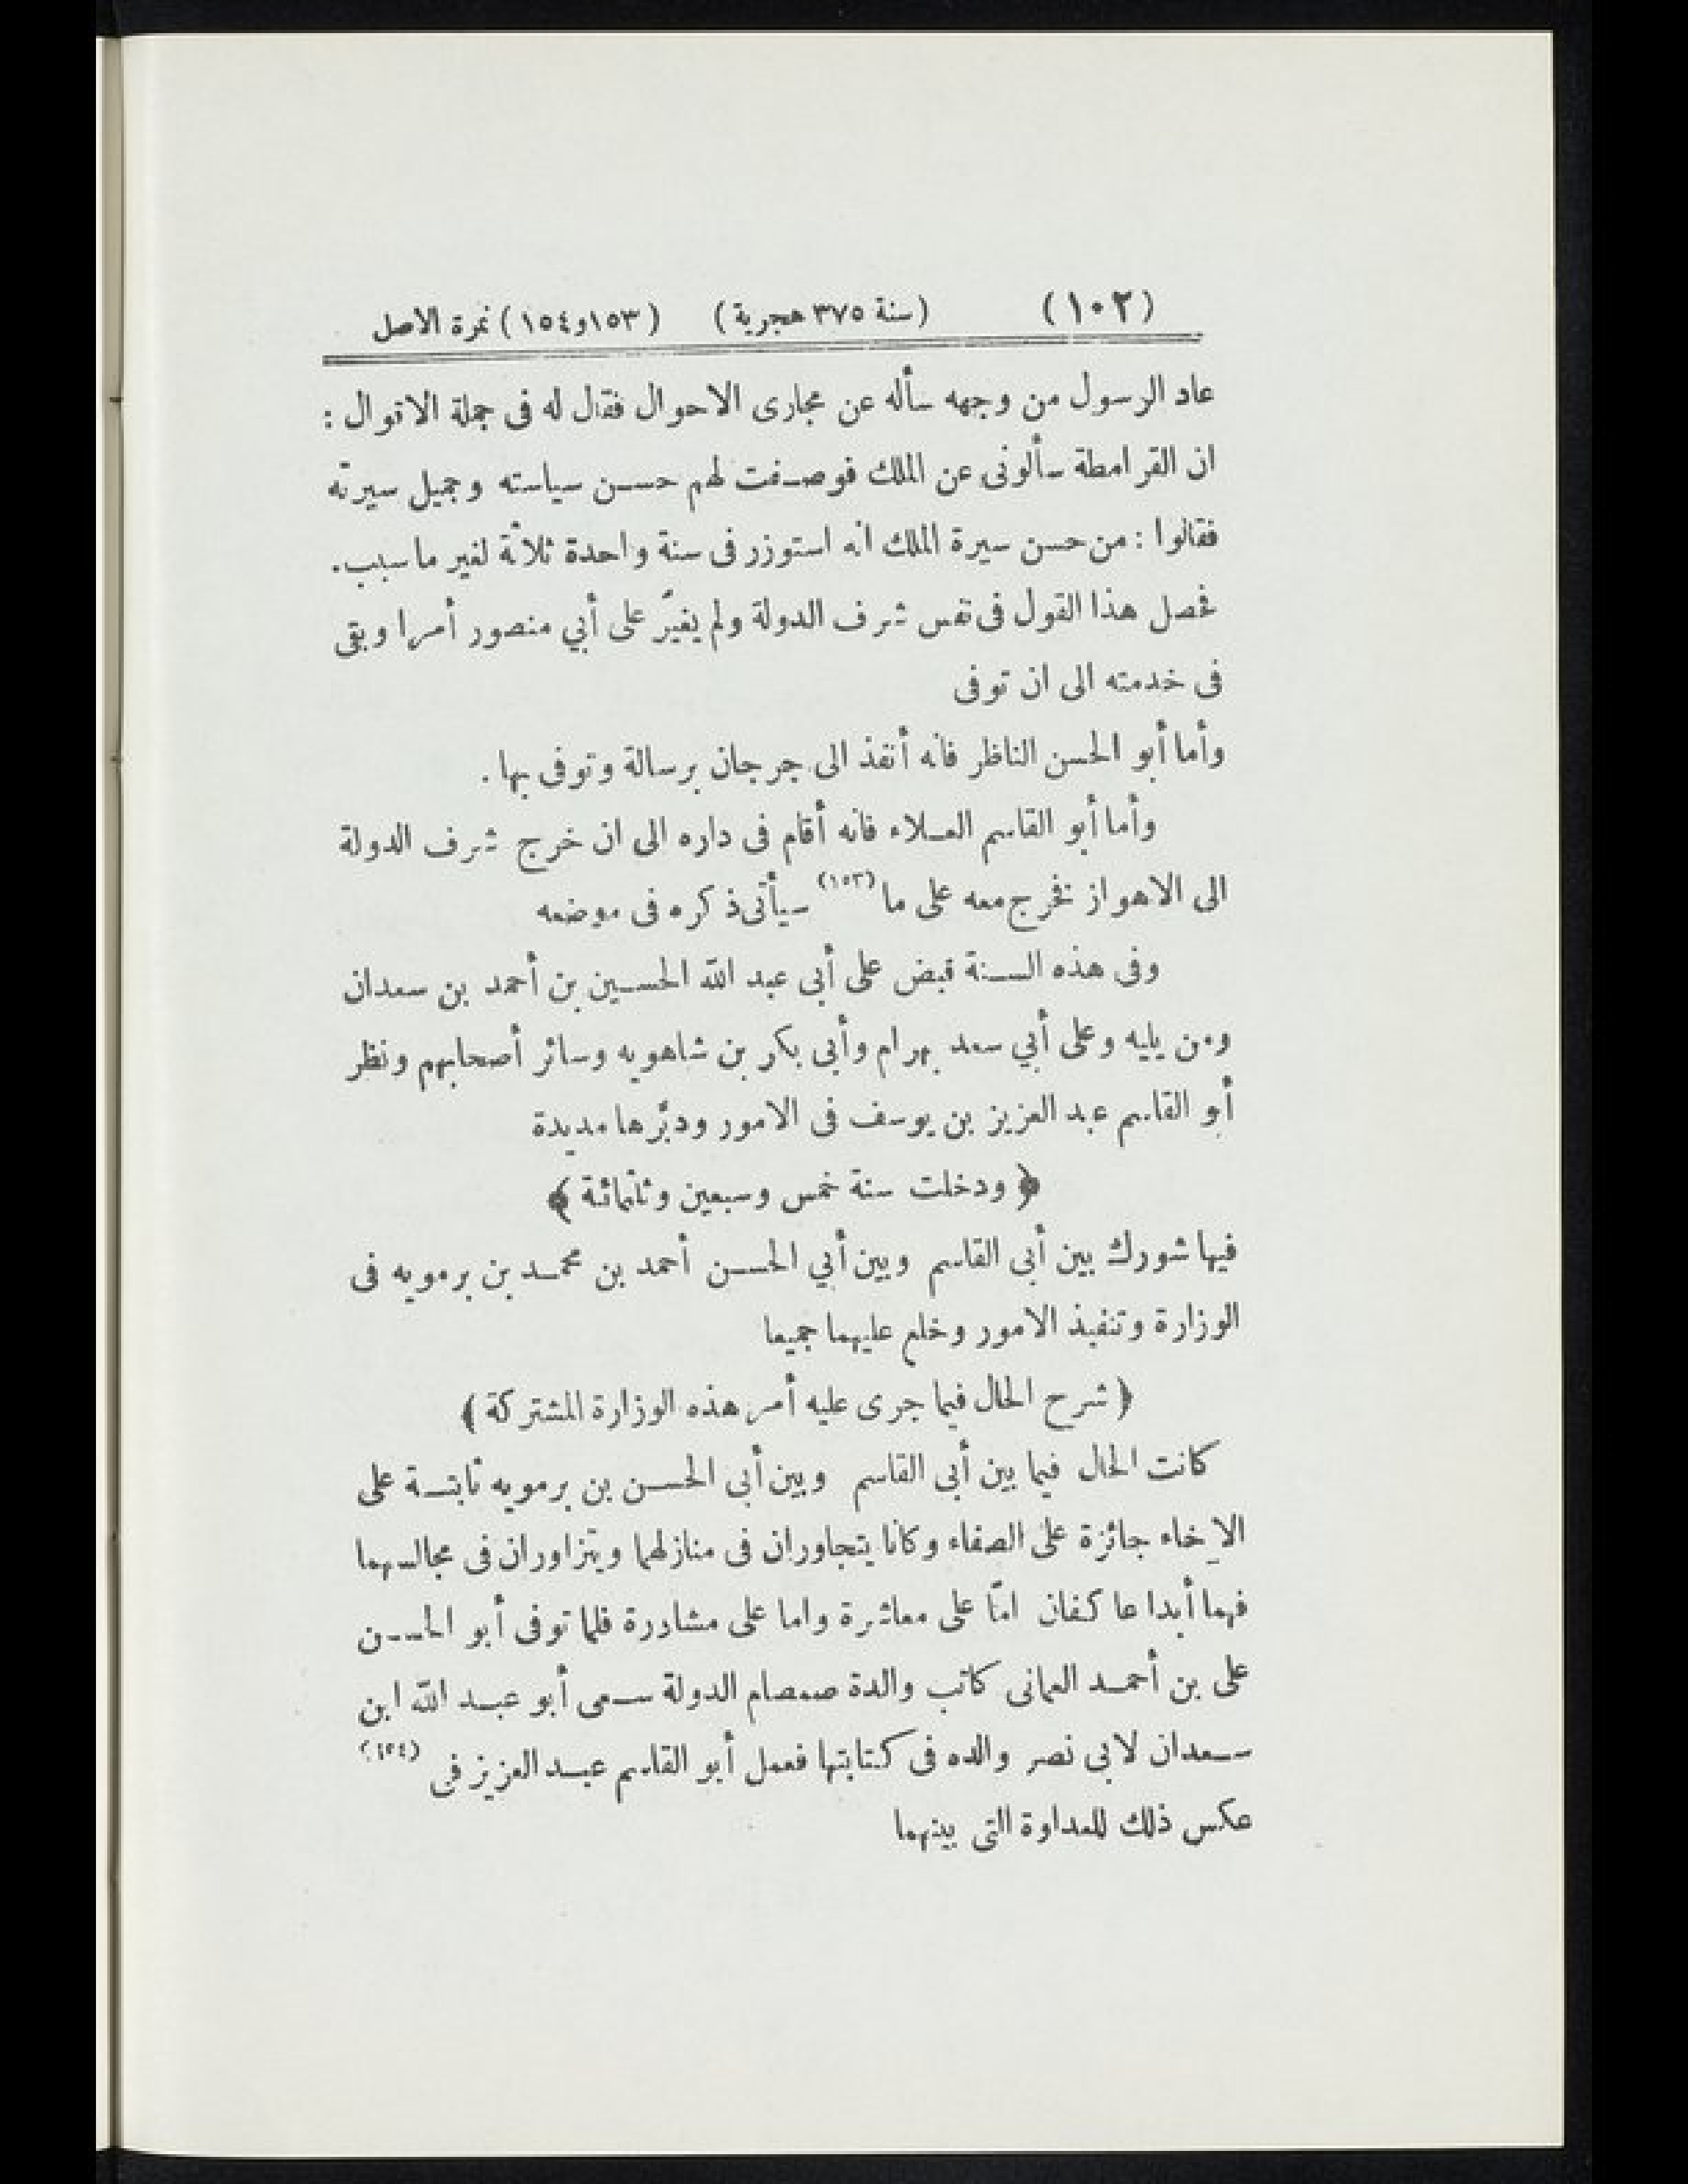 (١٠٢) (سنة ٣٧٥ هجرية) (١٥٣و١٥٤) نمرة الاصل
عاد الرسول من وجهه سأله عن مجارى الاحوال فقال له فى جملة الاقوال :
ان القرامطة سألونى عن الملك فوصفت لهم حسن سياسته وجميل سيرته
فقالوا : من حسن سيرة الملك انه استوزر فى سنة واحدة ثلاثة لغير ما سبب.
فحصل هذا القول فى نفس شرف الدولة ولم يغيّر على أبي منصور أمرا وبقى
فى خدمته الى ان توفى
وأما أبو الحسن الناظر فانه أنفذ الى جرجان برسالة وتوفى بها .
وأما أبو القاسم العلاء فانه أقام فى داره الى ان خرج شرف الدولة
الى الاهواز فخرج معه على ما (١٥٣) سيأتى ذكره فى موضعه
وفى هذه السنة قبض على أبى عبد الله الحسين بن أحمد بن سعدان
ومن يليه وعلى أبي سعد بهرام وأبى بكر بن شاهويه وسائر أصحابهم ونظر
أبو القاسم عبد العزيز بن يوسف فى الامور ودبّرها مديدة
﴿ ودخلت سنة خمس وسبعين وثلثمائة ﴾
فيها شورك بين أبى القاسم وبين أبي الحسن أحمد بن محمد بن برمويه فى
الوزارة وتنفيذ الامور وخلع عليهما جميعا
﴿ شرح الحال فيما جرى عليه أمر هذه الوزارة المشتركة ﴾
كانت الحال فيما بين أبى القاسم وبين أبى الحسن بن برمويه ثابتة على
الاخاء جائزة على الصفاء وكانا يتجاوران فى منازلهما ويتزاوران فى مجالسهما
فهما أبدا عاكفان امّا على معاشرة واما على مشاورة فلما توفى أبو الحسن
على بن أحمد العمانى كاتب والدة صمصام الدولة سعى أبو عبد الله ابن
سعدان لابى نصر والده فى كتابتها فعمل أبو القاسم عبد العزيز فى (١٥٤)
عكس ذلك للعداوة التى بينهما